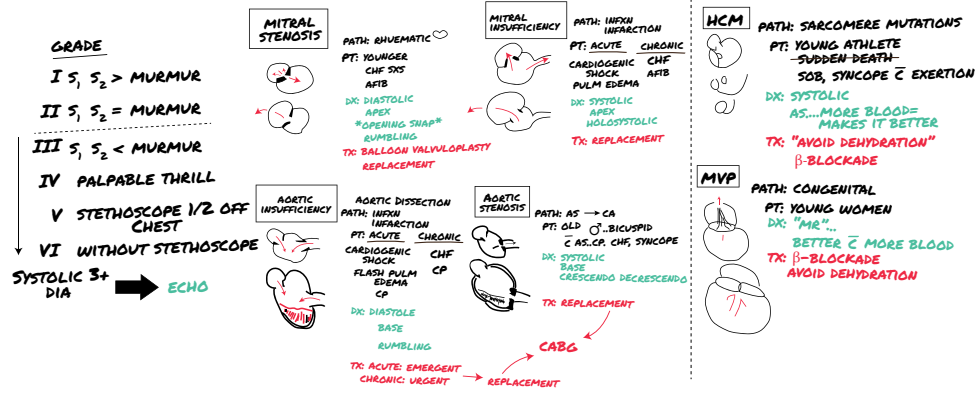 GRADE
I S1 S2 > MURMUR
II S1 S2 = MURMUR
III S1 S2 < MURMUR
IV PALPABLE THRILL
V STETHOSCOPE 1/2 OFF
CHEST
VI WITHOUT STETHOSCOPE
SYSTOLIC 3+
DIA
ECHO
MITRAL
STENOSIS
PATH: RHUEMATIC
PT: YOUNGER
CHF SXS
AFIB
DX: DIASTOLIC
APEX
*OPENING SNAP*
RUMBLING
TX: BALLOON VALVULOPLASTY
REPLACEMENT
MITRAL
INSUFFICIENCY
PATH: INFXN
INFARCTION
PT: ACUTE CHRONIC
CARDIOGENIC CHF
SHOCK AFIB
PULM EDEMA
DX: SYSTOLIC
APEX
HOLOSYSTOLIC
TX: REPLACEMENT
AORTIC
INSUFFICIENCY
AORTIC DISSECTION
PATH: INFXN
INFARCTION
PT: ACUTE CHRONIC
CARDIOGENIC CHF
SHOCK CP
FLASH PULM
EDEMA
CP
DX: DIASTOLE
BASE
RUMBLING
TX: ACUTE: EMERGENT
CHRONIC: URGENT
REPLACEMENT
AORTIC
STENOSIS
PATH: AS → CA
PT: OLD ♂..BICUSPID
c̄ AS..CP. CHF, SYNCOPE
DX: SYSTOLIC
BASE
CRESCENDO DECRESCENDO
TX: REPLACEMENT
CABG
HCM
PATH: SARCOMERE MUTATIONS
PT: YOUNG ATHLETE
SUDDEN DEATH
SOB, SYNCOPE c̄ EXERTION
DX: SYSTOLIC
AS....MORE BLOOD=
MAKES IT BETTER
TX: "AVOID DEHYDRATION"
β-BLOCKADE
MVP
PATH: CONGENITAL
PT: YOUNG WOMEN
DX: "MR"...
BETTER c̄ MORE BLOOD
TX: β-BLOCKADE
AVOID DEHYDRATION